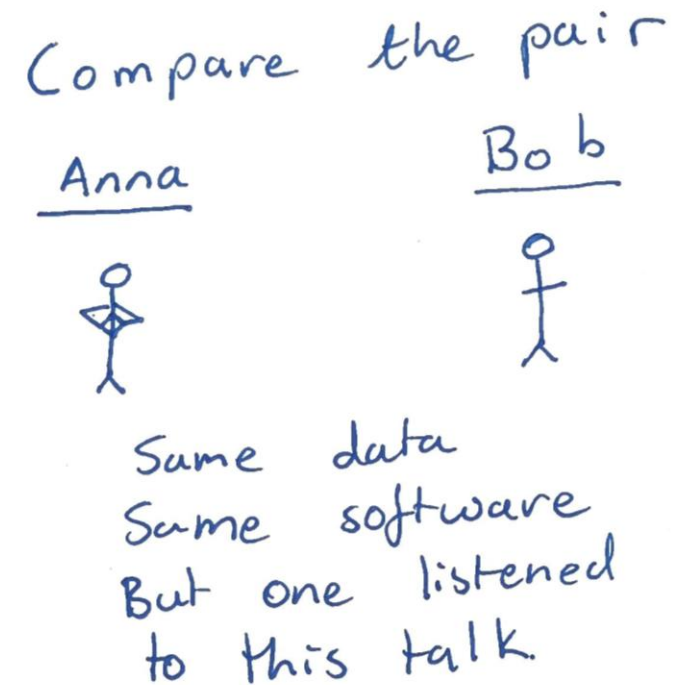 Compare the pair
Anna Bob
Same data
Same software
But one listened
to this talk.